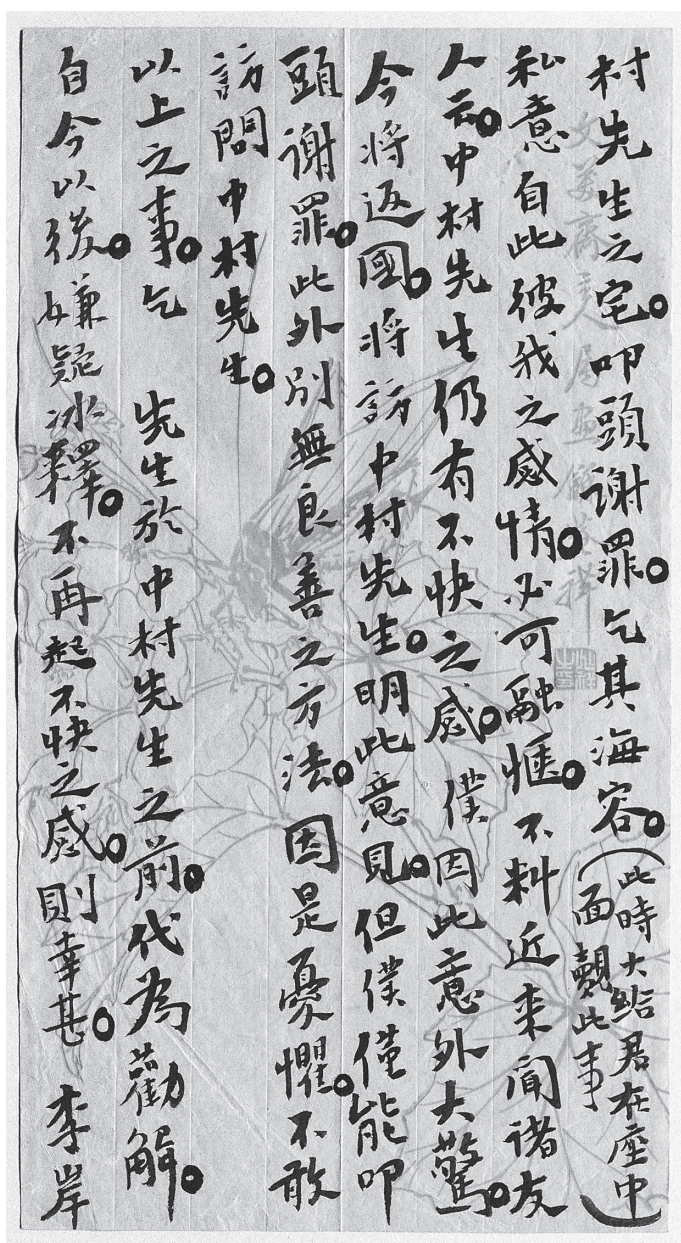 村先生之宅。叩頭謝罪。乞其海容。（此時大給君在座中面覩此事）
私意自此彼我之感情。必可融愜。不料近来聞諸友
人云。中村先生仍有不快之感。僕因此意外大驚。
今将返國。将訪中村先生。明此意見。但僕僅能叩
頭謝罪。此外別無良善之方法。因是憂懼。不敢
訪問中村先生。
以上之事。乞　先生於中村先生之前。代為勸解。
自今以後。嫌疑冰釋。不再起不快之感。則幸甚。　李岸